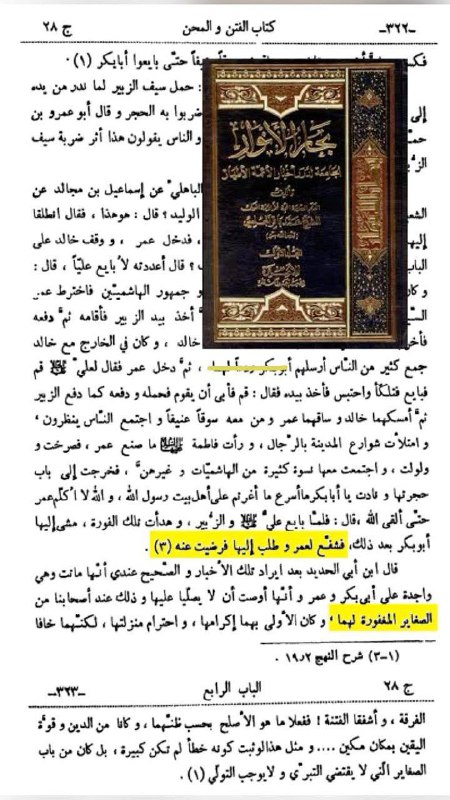 -٣٢٢-
كتاب الفتن و المحن
ج ٢٨
حتّى بايعوا أبابكر (١) .
: حمل سيف الزبير لما ندر من يده
ضربوا به الحجر و قال أبو عمرو بن
و الناس يقولون هذا أثر ضربة سيف
بحار الأنوار
الجامعة لدرر أخبار الأئمة الأطهار
الباهلي عن إسماعيل بن مجالد عن
الوليد ؟ قال : هوهذا ، فقال انطلقا
، فدخل عمر ، و وقف خالد على
؟ قال أعددته لأ بايع عليّاً ، قال :
و جمهور الهاشميّين فاخترط عمر
أخذ بيد الزبير فأقامه ثمّ دفعه
خالد ، و كان في الخارج مع خالد
جمع كثير من النّاس أرسلهم أبوبكر ، ثمّ دخل عمر فقال لعلي قم
فبايع فتلكّأ واحتبس فأخذ بيده فقال : قم فأبى أن يقوم فحمله و دفعه كما دفع الزبير
ثمّ أمسكهما خالد و ساقهما عمر و من معه سوقاً عنيفاً و اجتمع النّاس ينظرون ،
و امتلأت شوارع المدينة بالرّجال ، و رأت فاطمة ما صنع عمر ، فصرخت و
ولولت ، و اجتمعت معها نسوة كثيرة من الهاشميّات و غيرهنّ ، فخرجت إلى باب
حجرتها و نادت يا أبابكر ماأسرع ما أغرتم على أهل بيت رسول الله ، و الله لا اُكلّم عمر
حتّى ألقى الله ،قال : فلمّا بايع عليّ و الزّبير ، و هدأت تلك الفورة ، مشى إليها
أبوبكر بعد ذلك، فشفّع لعمر و طلب إليها فرضيت عنه (٣) .
قال ابن أبي الحديد بعد ايراد تلك الأخبار و الصّحيح عندي أنّها ماتت وهي
واجدة على أبي بكر و عمر و أنّها أوصت أن لا يصلّيا عليها و ذلك عند أصحابنا من
الصغاير المغفورة لهما ، و كان الأولى بهما إكرامها ، و احترام منزلتها ، لكنّهما خافا
(١-٣) شرح النهج ١٩،٢ .
ج ٢٨
الباب الرابع
-٣٢٣-
الفرقة ، و أشفقا الفتنة ! ففعلا ما هو الأصلح بحسب ظنّهما ، و كانا من الدين و قوّة
اليقين بمكان مكين .... و مثل هذا لوثبت كونه خطأ لم تكن كبيرة ، بل كان من باب
الصغاير الّتي لا يقتضي التبرّي ، و لايوجب التولّي (١) .